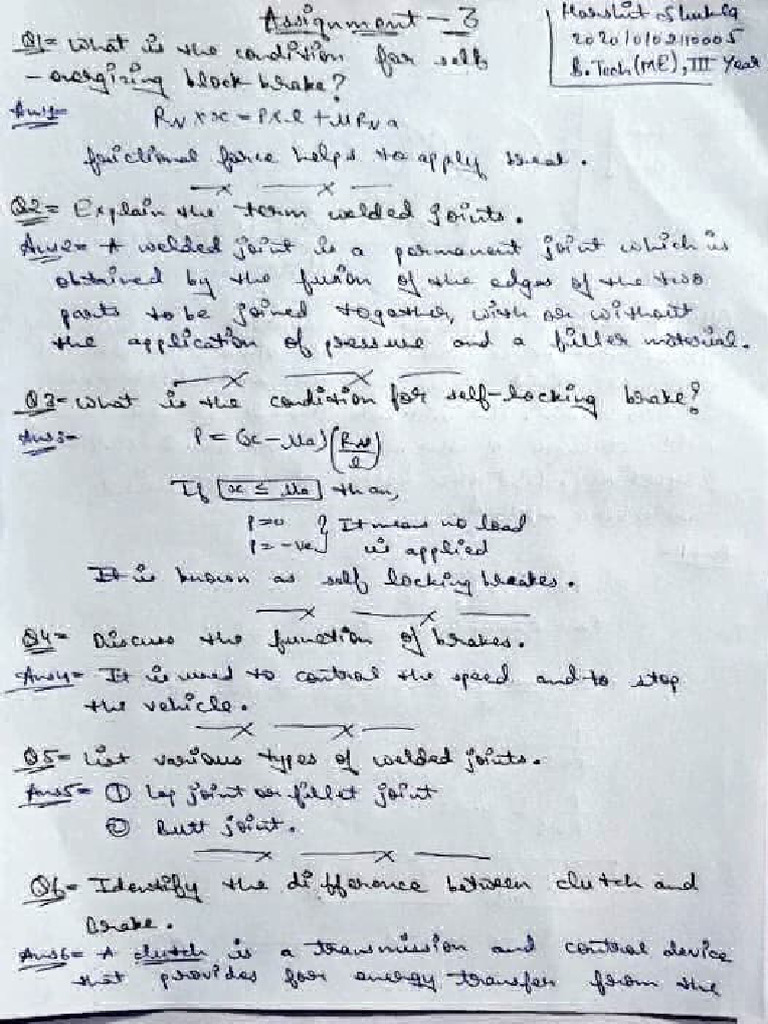 Assignment - 3
Harshit Shukla
202010102110005
B.Tech (ME), III Year
Q1= What is the condition for self
-energizing block brake?
Ans1= RN x x = P x l + μ RN a
frictional force helps to apply
Q2= Explain the term welded joints.
Ans2= A welded joint is a permanent joint which is
obtained by the fusion of the edges of the two
parts to be joined together, with or without
the application of pressure and a filler material.
Q3- What is the condition for self-locking brake?
Ans3- P = (x - μa) (RN/l)
If x ≤ μa than,
P=0 } It means no load
P=-ve is applied
It is known as self locking breakes.
Q4= Discuss the function of brakes.
Ans4= It is used to control the speed and to stop
the vehicle.
Q5= List various types of welded joints.
Ans5= ① Lap joint or fillet joint
② Butt joint.
Q6= Identify the difference between clutch and
Brake.
Ans6= A clutch is a transmission and control device
that provides for energy transfer from the